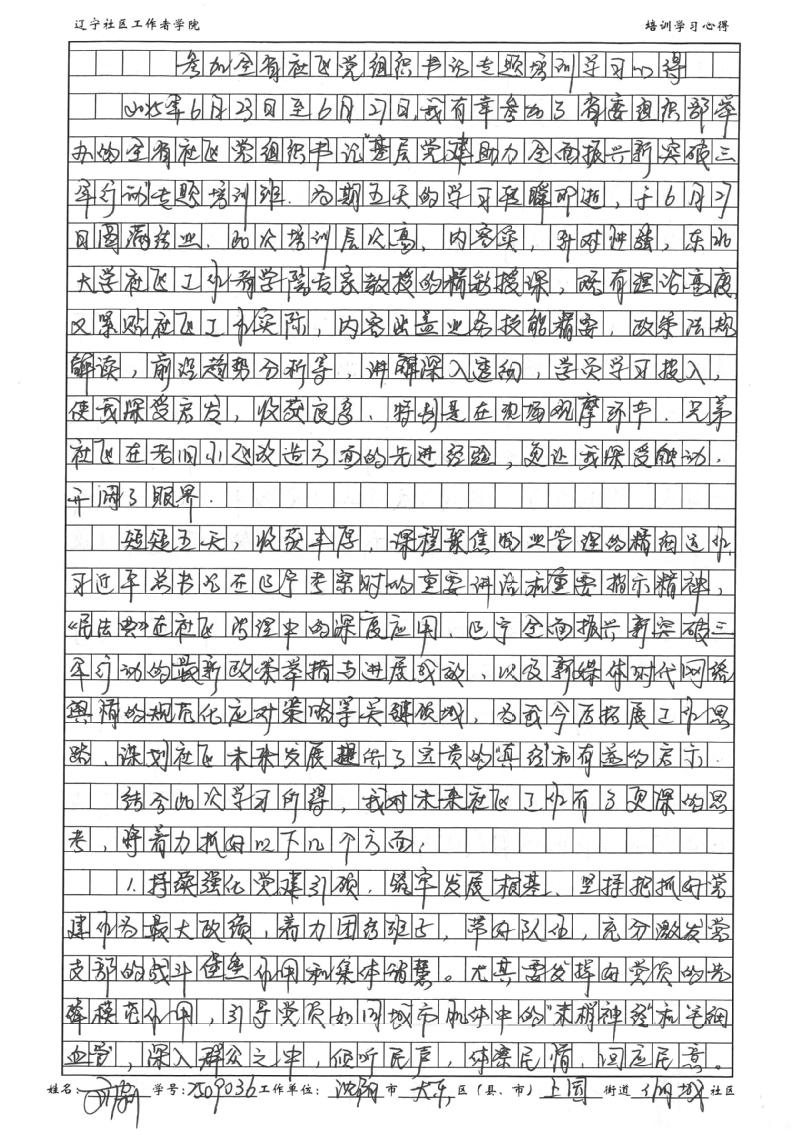 辽宁社区工作者学院 培训学习心得
参加全省社区党组织书记专题培训学习心得
2025年6月23日至6月27日,我有幸参加了省委组织部举
办的全省社区党组织书记“基层党建助力全面振兴新突破三
年行动”专题培训班。为期五天的学习转瞬即逝,于6月27
日圆满结业。此次培训层次高,内容实,针对性强,东北
大学社区工作者学院专家教授的精彩授课,既有理论高度
又紧贴社区工作实际,内容涵盖业务技能精要,政策法规
解读,前沿趋势分析等,讲解深入透彻,学员学习投入,
使我深受启发,收获良多、特别是在现场观摩环节.兄弟
社区在老旧小区改造方面的先进经验,更让我深受触动.
开阔了眼界.
短短五天,收获丰厚.课程聚焦物业管理的精细运作,
习近平总书记在辽宁考察时的重要讲话和重要指示精神,
《民法典》在社区治理中的深度应用、辽宁全面振兴新突破三
年行动的最新政策举措与进展成效、以及新媒体时代网络
舆情的规范化应对策略等关键领域,为我今后拓展工作思
路、谋划社区未来发展提供了宝贵的“真经”和有益的启示.
结合此次学习所得,我对未来社区工作有了更深的思
考,将着力抓好以下几个方面:
1.持续强化党建引领.筑牢发展根基.坚持把抓好党
建作为最大政绩,着力团结班子,带好队伍,充分激发党
支部的战斗堡垒作用和集体智慧。尤其要发挥好党员的先
锋模范作用,引导党员如同城市肌体中的“末梢神经”和毛细
血管,深入群众之中,倾听民声,体察民情,回应民意。
姓名: 学号:2509036 工作单位: 沈阳 市 大东 区(县、市) 上园 街道 城 社区